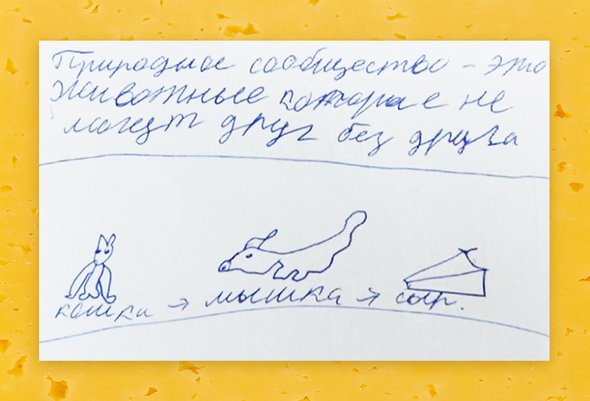 Природное сообщество - это
животные которые не
могут друг без друга
кошка → мышка → сыр.